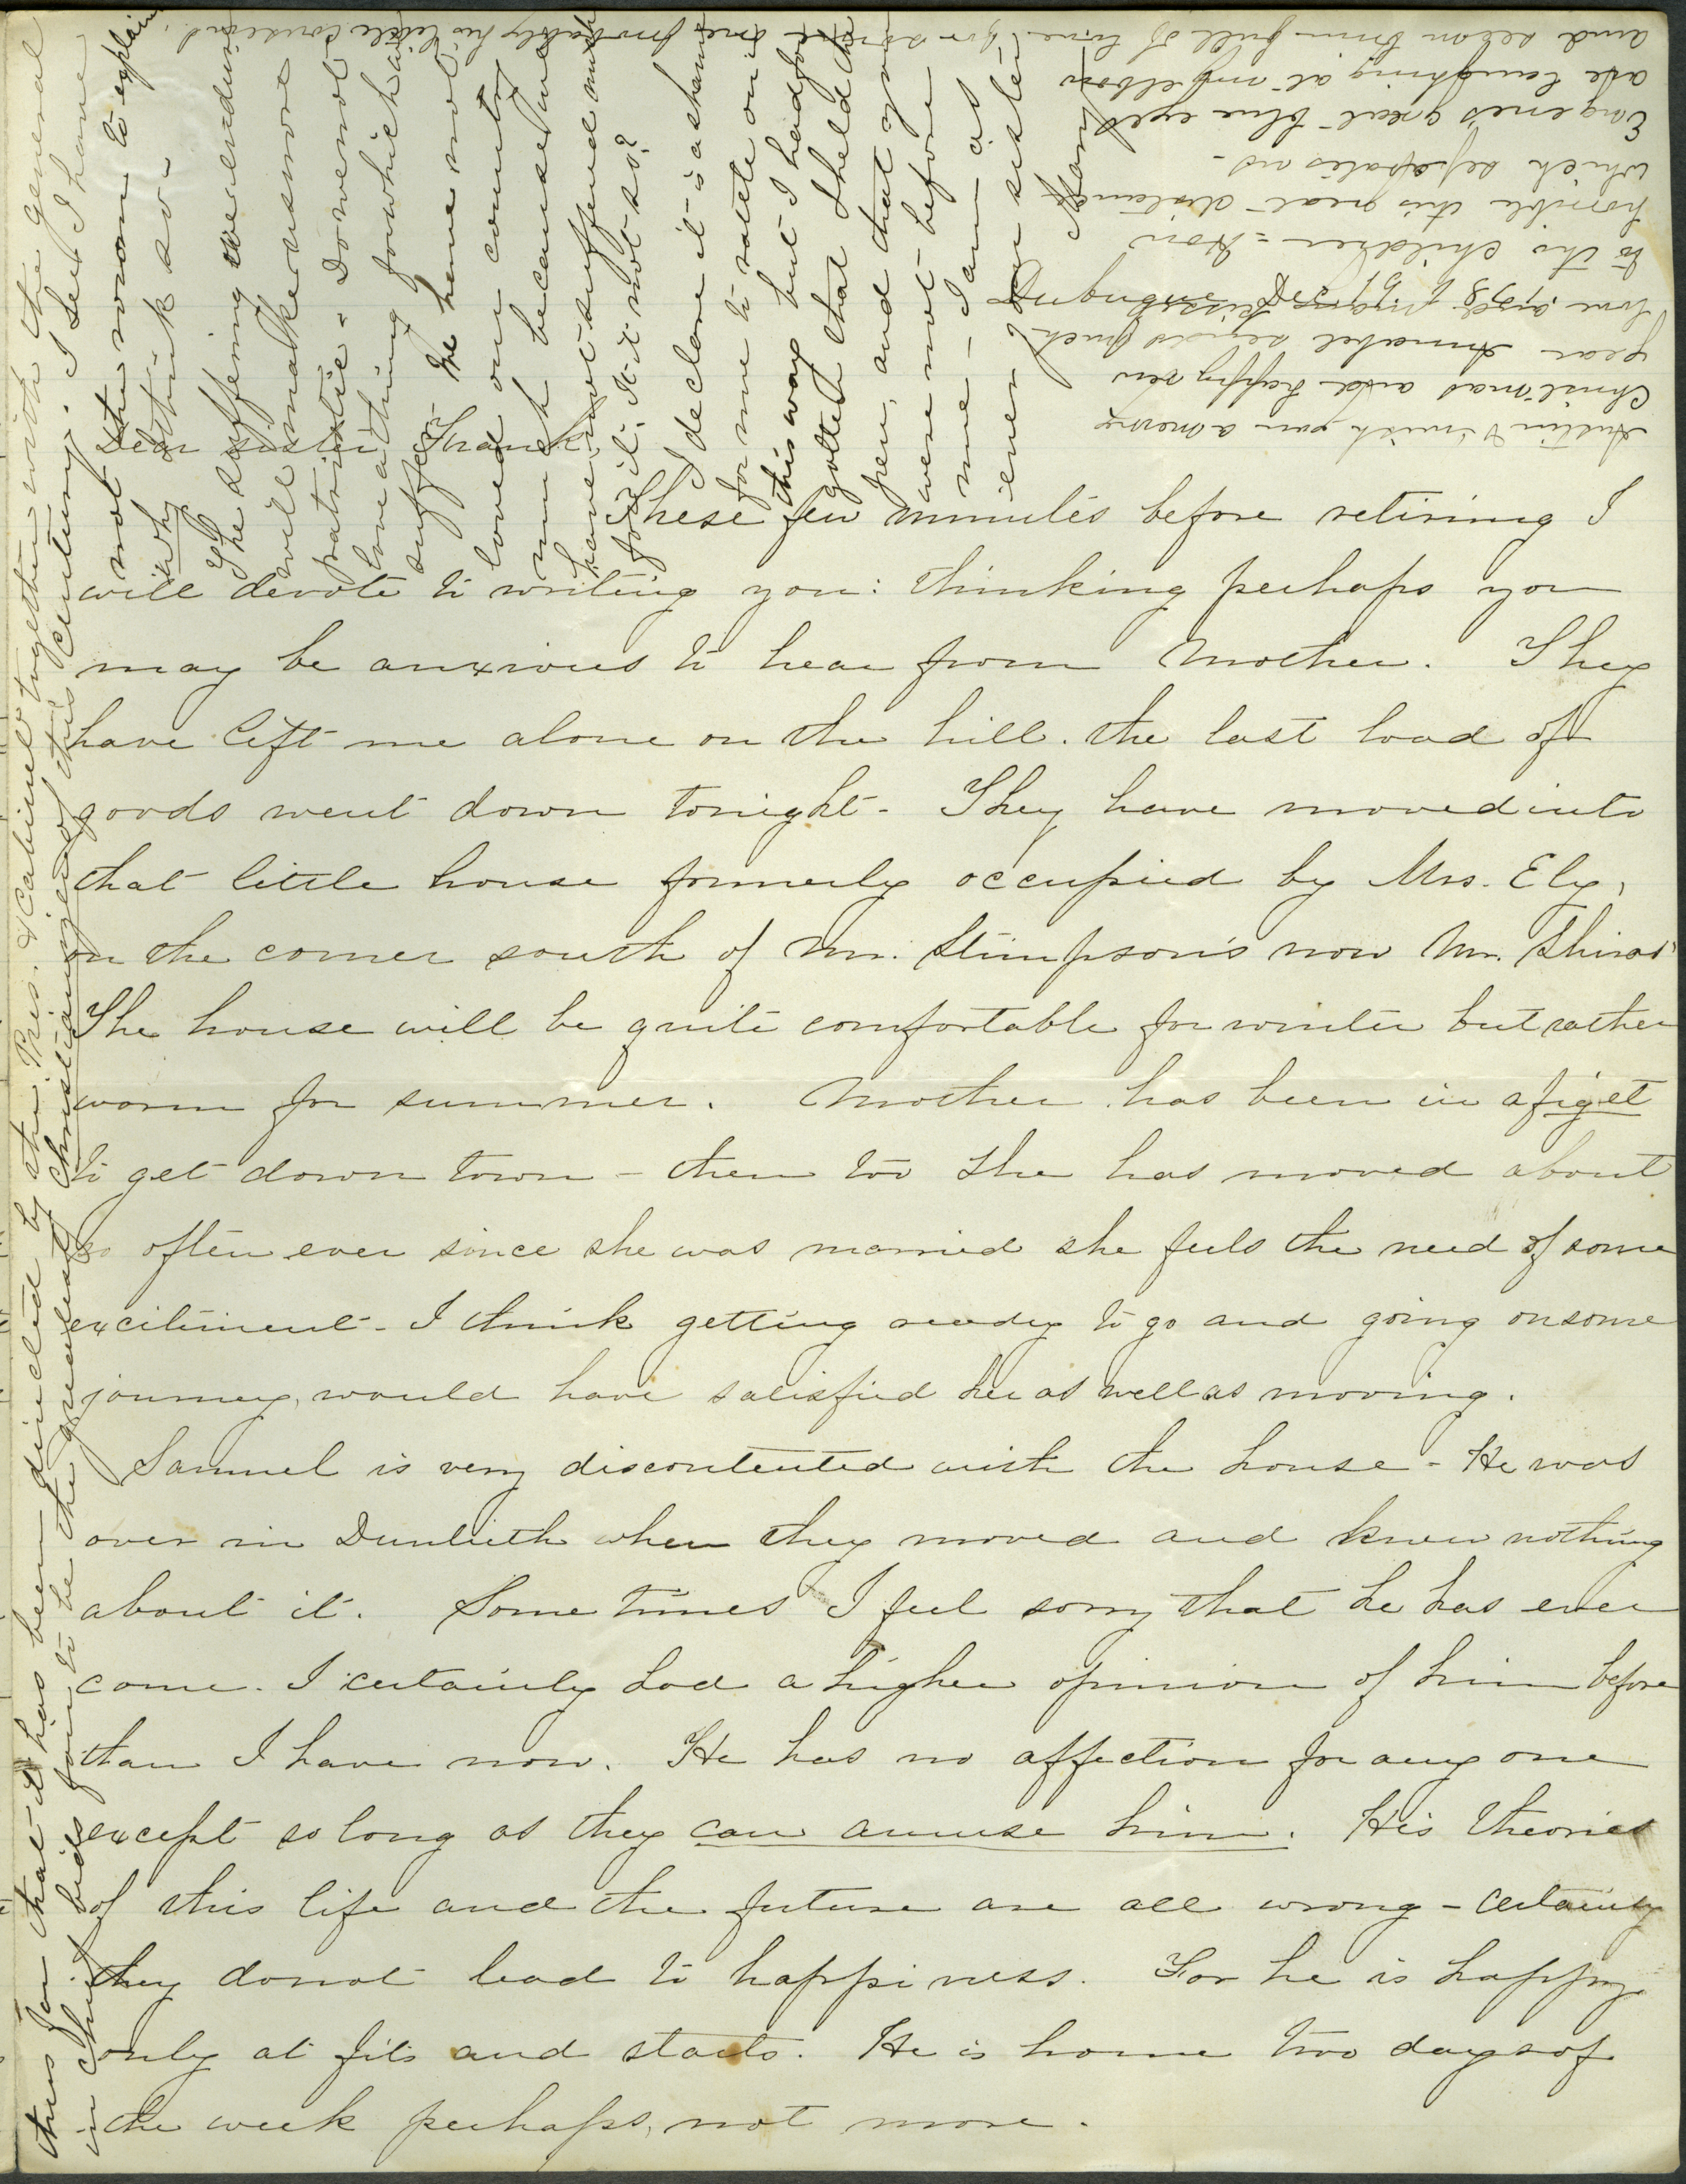 Dear sister Frank,
These few minutes before retiring I
will devote to writing you: thinking perhaps you
may be anxious to hear from Mother. They
have left me alone on the hill. the last load of
goods went down tonight - They have moved into
that little house formerly occupied by Mrs. Ely,
on the corner south of Mr. Stimpson's now Mr. Shiras'
The house will be quite comfortable for winter but rather
warm for summer. Mother has been in a figet
to get down town - then too she has moved about
so often ever since she was married she feels the need of some
excitement - I think getting ready to go and going on some
journey, would have satisfied her as well as moving.
Samuel is very discontented with the house - He was
over in Dunlieth when they moved and knew nothing
about it. Some times I feel sorry that he has ever
come. I certainly had a higher opinion of him before
than I have now. He has no affection for any one
except so long as they can amuse him. His theories
of this life and the future are all wrong - certainly
they do not lead to happiness. For he is happy
only at fits and starts. He is home two days of
the week perhaps, not more.
thus far that it has been directed by the Pres. & Cabinet together with the general
in chief bids fair to be the greatest of this century. I see I have
not the room to explain
why I think so -
The suffering we endure
will make us more
patriotic - Do we not
love a thing for which we have
suffered - We have not
loved our country
much because we
have not suffered much
for it. Is it not so?
I declare it is a shame
for me to write on in
this way but I had for-
gotten that I held the
pen, and that you
were not before
me - I am as
ever your sister
Mary
Austin & I wish you a merry
Christmas and happy new
year Annabel sends much
love and many kisses
to the children - How
horrible this great distance
which separates us -
Eugene's great blue eyes
are laughing at my elbow
and seem brim full of love for some one probably his little cousins.